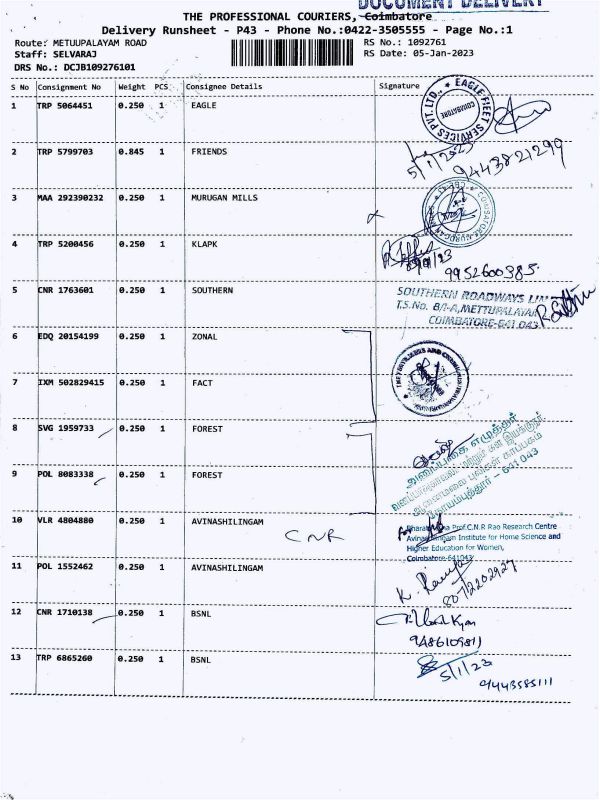 DOCUMENT DELIVERY
THE PROFESSIONAL COURIERS, Coimbatore
Delivery Runsheet - P43 - Phone No.:0422-3505555 - Page No.:1
Route: METUUPALAYAM ROAD
RS No.: 1092761
Staff: SELVARAJ
RS Date: 05-Jan-2023
DRS No.: DCJB109276101
S No Consignment No Weight PCS Consignee Details Signature
1 TRP 5064451 0.250 1 EAGLE
EAGLE FLEET SERVICES PVT. LTD., COIMBATORE
2 TRP 5799703 0.845 1 FRIENDS
5/1/2023
9443821299
3 MAA 292390232 0.250 1 MURUGAN MILLS
4 TRP 5200456 0.250 1 KLAPK
9952600385
5 CNR 1763601 0.250 1 SOUTHERN
SOUTHERN ROADWAYS
T.S.No. 8/1-A, METTUPALAYAM
COIMBATORE-641 043
6 EDQ 20154199 0.250 1 ZONAL
7 IXM 502829415 0.250 1 FACT
8 SVG 1959733 0.250 1 FOREST
9 POL 8083338 0.250 1 FOREST
கோயம்புத்தூர் – 641 043
10 VLR 4804880 0.250 1 AVINASHILINGAM
CNR
Prof.C.N.R Rao Research Centre
Institute for Home Science and
Higher Education for Women,
Coimbatore-641043
11 POL 1552462 0.250 1 AVINASHILINGAM
8072202927
12 CNR 1710138 0.250 1 BSNL
9486109811
13 TRP 6865260 0.250 1 BSNL
5/1/23
9443585111